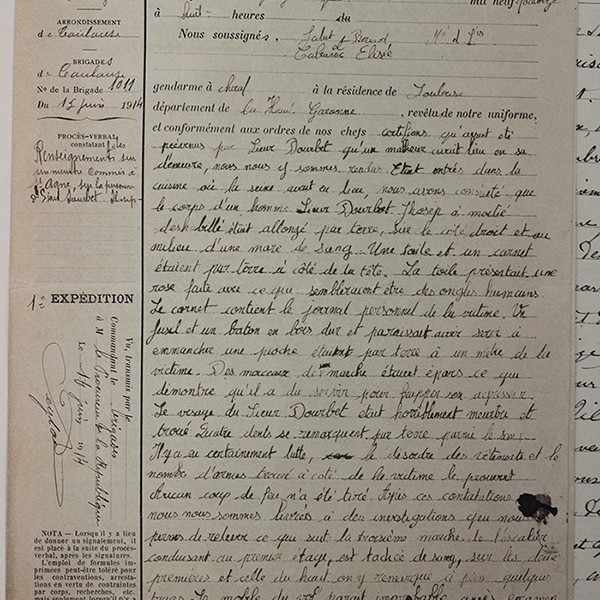 ARRONDISSEMENT
de Toulouse
BRIGADES
de Toulouse
No de la Brigade 1011
Du 17 juin 1914
PROCÈS-VERBAL
constatant des
Renseignements sur
un meurtre commis à
sur la personne
1re EXPÉDITION
Vu, transmis par le
Commandant la brigade
à M. le Procureur de la République
Le 17 juin 1914
NOTA — Lorsqu'il y a lieu
de donner un signalement, il
est placé à la suite du procès-
verbal, après les signatures.
L'emploi de formules im-
primées peut-être toléré pour
les contraventions, arresta-
tions en vertu de contraintes
par corps, recherches, etc.
à huit heures du
Nous soussignés
gendarme à cheval à la résidence de Toulouse
département de la Haute Garonne, revêtu de notre uniforme,
et conformément aux ordres de nos chefs certifions qu'ayant été
prévenus par Sieur Dourbot qu'un malheur avait lieu en sa
demeure, nous nous y sommes rendus Etant entrés dans la
cuisine où la scène avait eu lieu, nous avons constaté que
le corps d'un homme Sieur Dourbot Jhosep à moitié
deshabillé était allongé par terre, sur le côté droit et au
milieu d'une mare de sang. Une toile et un carnet
étaient par terre à côté de la tête. La toile présentait une
rose faite avec ce qui sembleraient être des ongles humains.
Le carnet contient le journal personnel de la victime. Un
fusil et un baton en bois dur et paraissait avoir servi à
emmancher une pioche étaient par terre à un mètre de la
victime. Des morceaux de manche étaient épars ce qui
démontre qu'il a du servir pour frapper son agresseur.
Le visage du Sieur Dourbot était horriblement meurtri et
troué Quatre dents se remarquent par terre parmi le sang
Il y a eu certainement lutte, le désordre des vêtements et le
nombre d'armes trouvé à côté de la victime le prouvent
Aucun coup de feu n'a été tiré. Après ces constatations
nous nous sommes livrés à des investigations qui nous
permis de relever ce qui suit la troisième marche de l'escalier
conduisant au premier étage, est tachée de sang, sur les deux
premières et celle du haut on y remarque à peine quelques
traces. Le mobile du vol parait improbable après examen